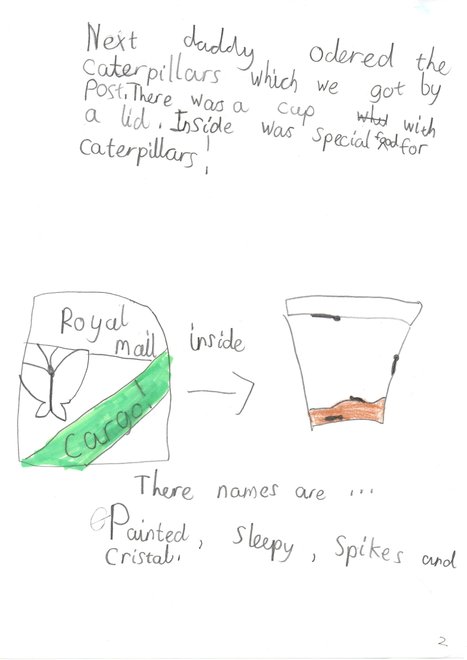 Next daddy odered the
caterpillars which we got by
Post. There was a cup with
a lid. Inside was special food for
caterpillars!
Royal
Mail
inside
Cargo!
There names are ...
Painted, Sleepy, Spikes and
Cristal.
2